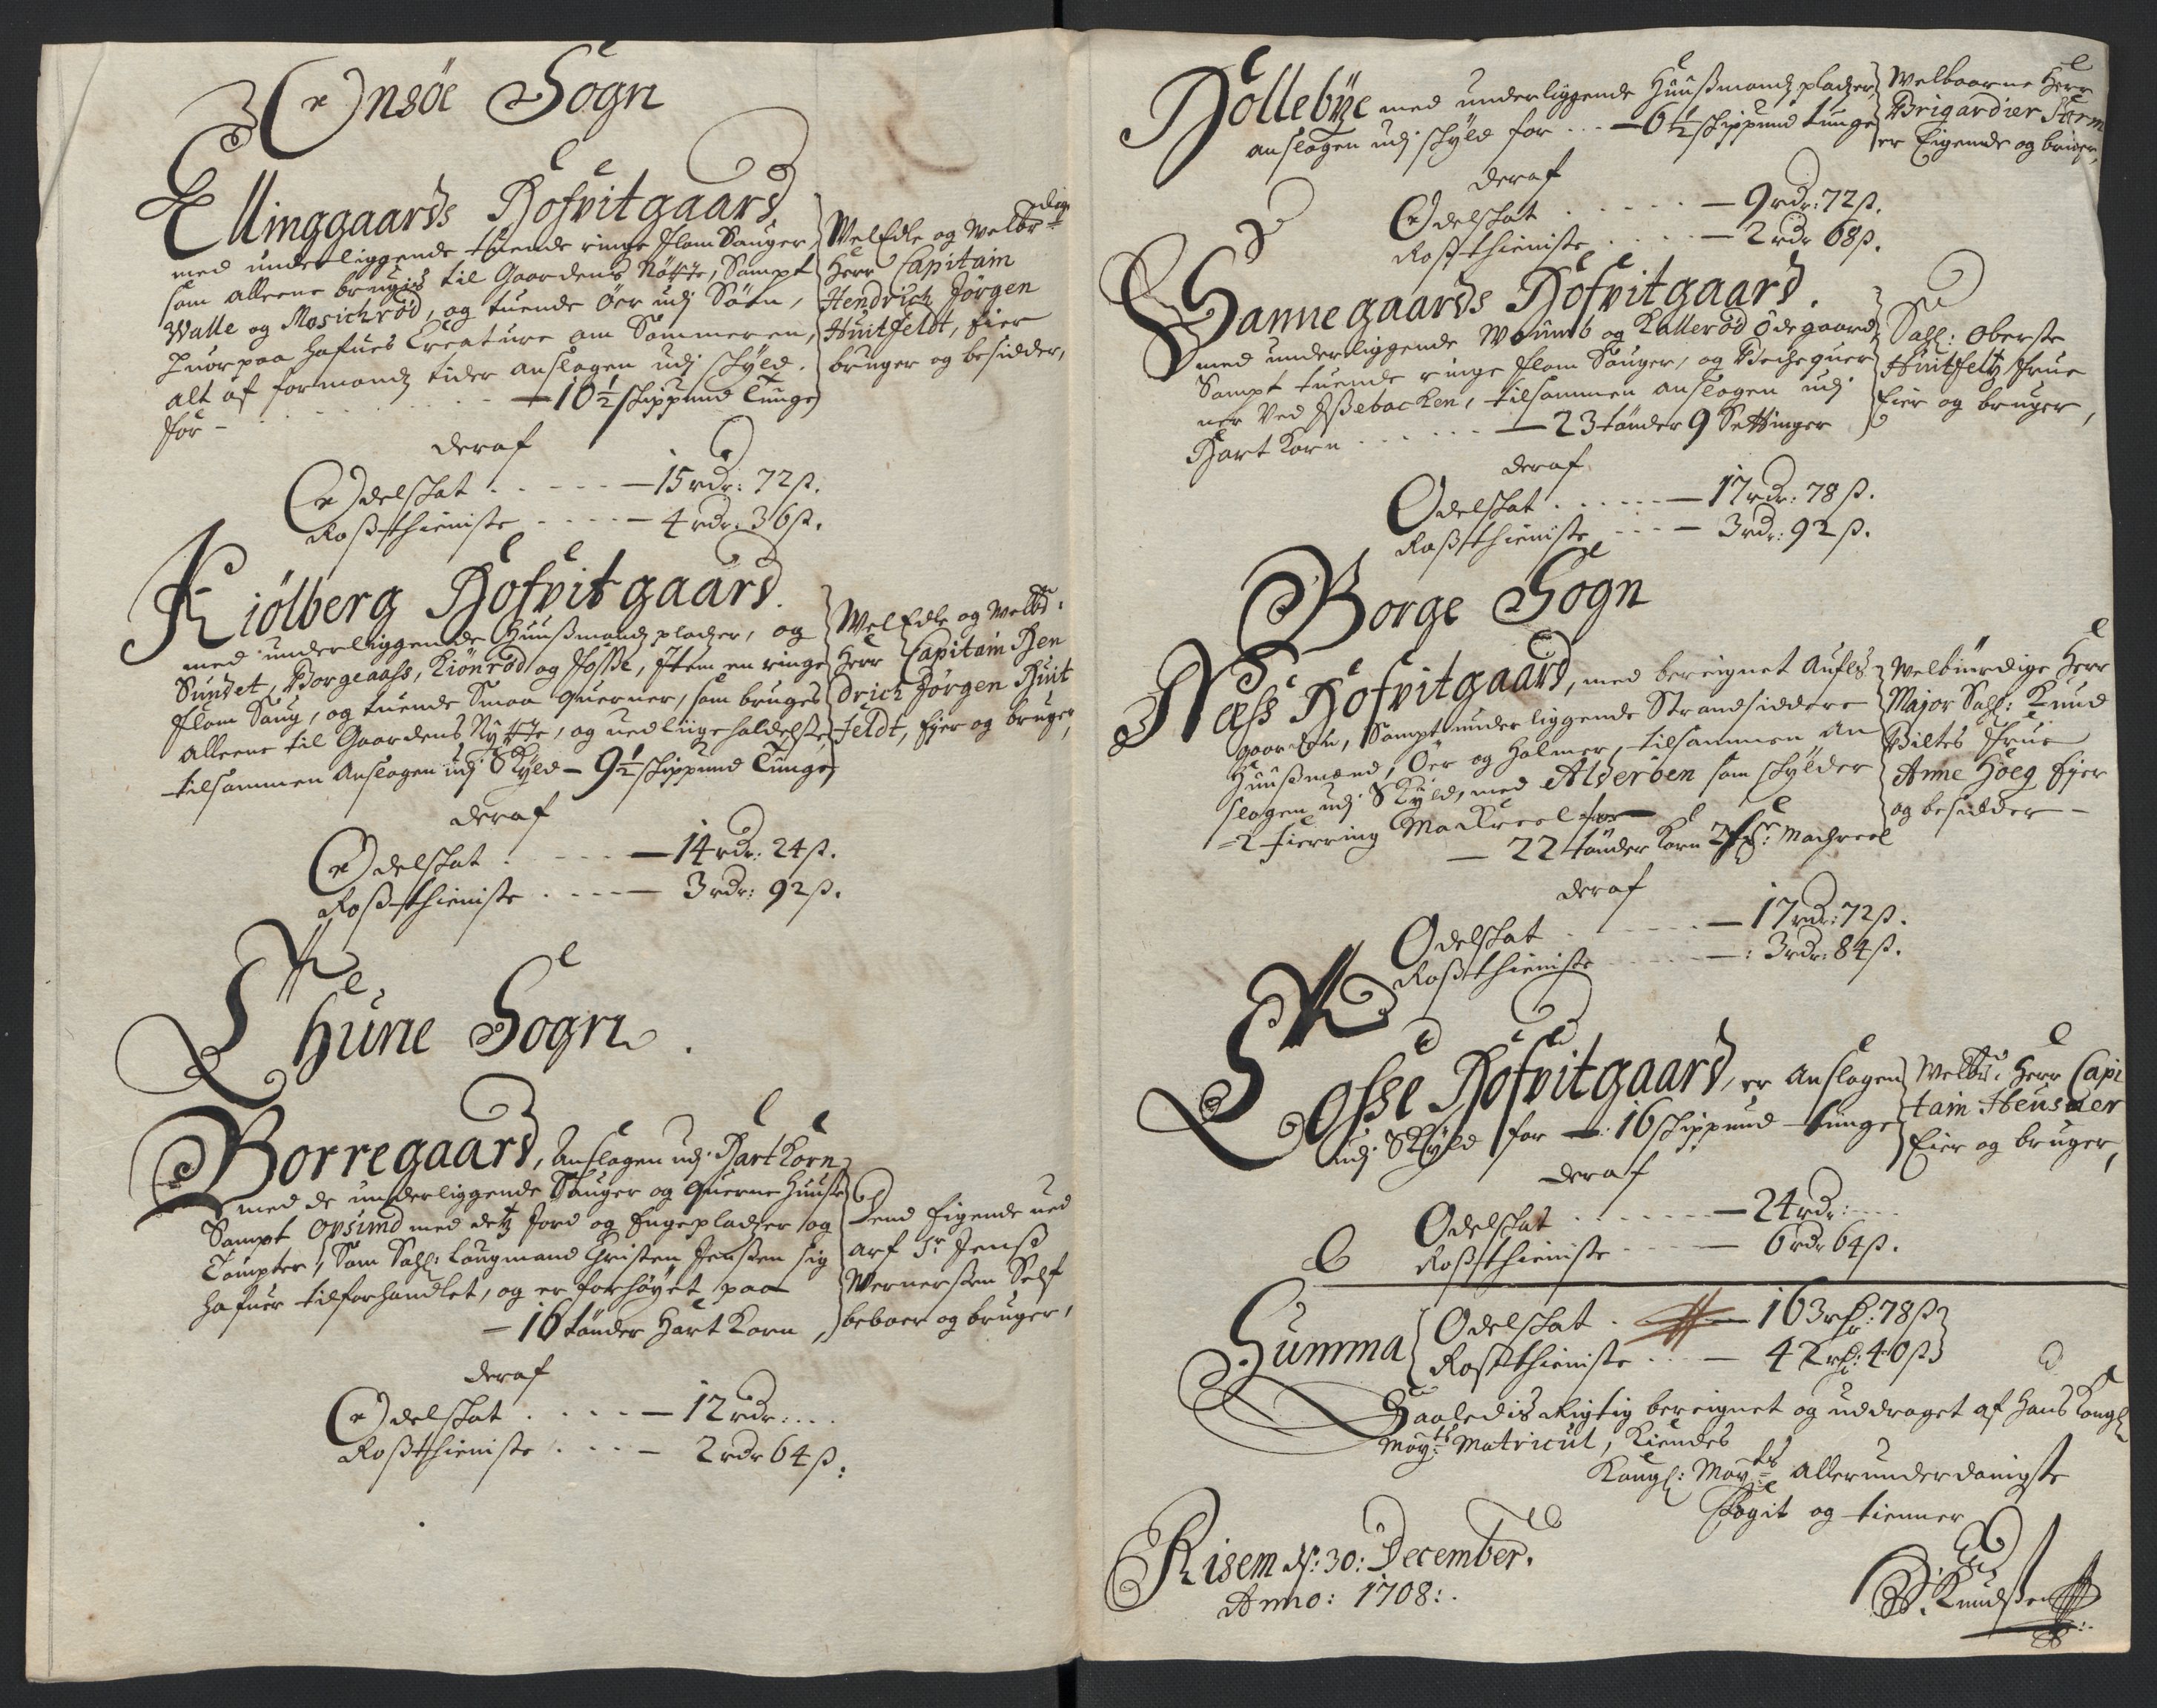 Onsøe Sogn
Ellinggaards Hofvitgaard
med underliggende tuende ringe flom Sauger,
som alleene brugis til Gaardens Nøtte, Sampt
Walle og Mosichrød, og tuende Öer udj Söen,
huorpaa hafues Creature om Sommeren,
alt af formands tider anslagen udj skyld.
for - - - - 10½ skippund Tunge
WelEdle og Welbr
Herr Capitain
Hendrich Jörgen
Huitfeldt, Eier
bruger og besidder,
deraf
Odelskat . . . . . 15 rdr: 72 ß.
Rostthieniste . . . . 4 rdr: 36 ß.
Kiölberg Hofvitgaard.
med underliggende Huusmands pladzer, og
Sundet, Borgeaass, Kiönrød og Fosse, Item en ringe
flom Saug, og tuende Smaa Querner, som bruges
alleene til Gaardens Nytte, og vedliigeholdelse,
tilsammen Anslagen udj Skyld - 9½ skippund Tunge
WelEdle og Welbr:
Herr Capitain Hen
drich Jörgen Huit
feldt, Ejer og bruger,
deraf
Odelskat . . . . 14 rdr: 24 ß.
Rostthieniste . . . . 3 rdr: 92 ß.
Thune Sogn.
Borregaard, Anslagen udj HartKorn
med de underliggende Sauger og Querne Huuse
Sampt Opsund med detz Jord og Engepladzer og
Tompter, Som Sahl: Laugmand Christen Jenssen sig
hafuer tilforhandlet, og er forhøyet paa
- 16 tönder Hart Korn,
Eigende ved
arf Sr Jens
Wernerssen Self
beboer og bruger,
deraf
Odelskat . . . . 12 rdr: . . .
Rostthieniste . . . - 2 rdr 64 ß:
Hollebÿe med underliggende Huusmands pladzer,
anslagen udj skyld for . . . 6½ skippund tunge
Welbaarne Herr
Brigardier Storm
er Eigende og bruger,
deraf
Odelskat . . . . . 9 rdr: 72 ß.
Rostthieniste . . . . 2 rdr 68 ß.
Sannegaards Hofvitgaard.
med underliggende Woumb og Kallerød Ödegaard
Sampt tuende ringe flom Sauger, og Bechequer
ner Ved Issebacken, tilsammen anslagen udj
Hart Korn . . . . . 23 tönder 9 Settinger
Sahl: Oberste
Huitfeltz Frue
Eier og bruger,
deraf
Odelskat . . . . . 17 rdr: 78 ß.
Rostthieniste . . . - 3 rdr: 92 ß.
Borge Sogn
Næss Hofvitgaard, med beregnet Aufls
gaarden, Sampt underliggende Strandsiddere
Huusmænd, Öer og Holmer, tilsammen An
slagen udj Skyld, med Alderöen som skylder
=2 fierring Mackreel for
- 22 tönder Korn 2 fr: Machreel
Welbiurdige Herr
Major Sahl: Knud
Biltes Frue
Anne Høeg Ejer
og besidder -
deraf
Odelskat . . . . . 17 rdr: 72 ß.
Rostthieniste . . . . -: 3 rdr: 84 ß.
Tosse Hofvitgaard, er Anslagen
udj Skyld for -: 16 skippund tunge
Welbr: Herr Capi
tain Heusner
Eier og bruger,
deraf
Odelskat . . . . . 24 rdr: . . .
Rostthieniste . . . . 6 rdr 64 ß.
Summa
Odelskat . - 163 rdr: 78 ß
Rostthieniste . . . - 42 rdr: 40 ß
Saaledis Rigtig beregnet og uddraget af Hans Kongl
Mayts: Matricul, Kiendes
Kongl: Mayts: allerunderdanigste
Fogit og tienner
Risem d: 30: December.
Anno: 1708:.
Knudssen